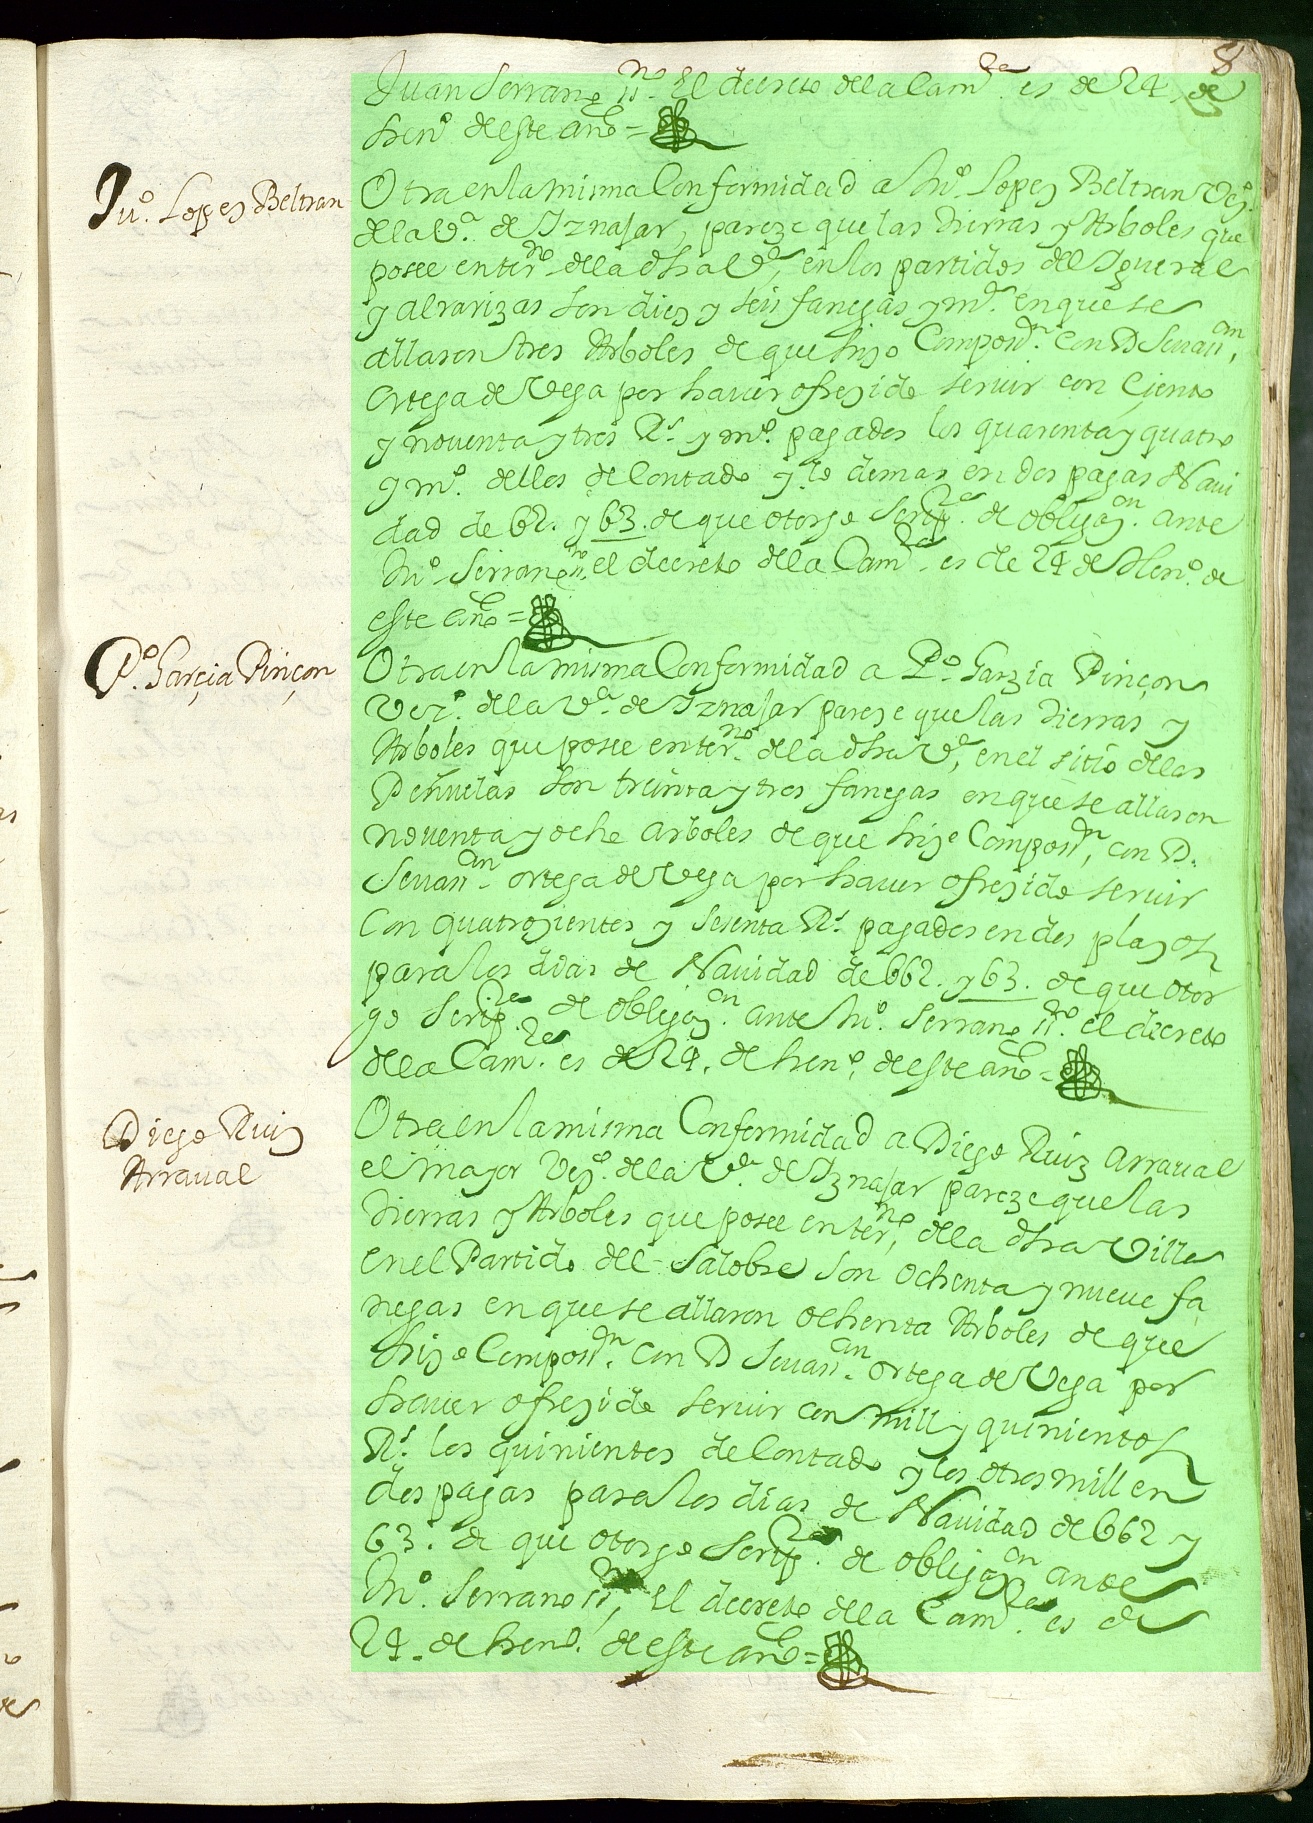 8
Juan Serrano ss.no El decreto de la Cam.ra es de 24 de
hen.o deste año =
Ju.o Lopez Beltran
Otra en la misma Conformidad a Ju.o Lopez Beltran Vez.o
de la V.a de Iznajar, pareze que las tierras y Arboles que
posee en ter.no de la dha V.a, en los partidos del Igueral
y alrarizas son diez y seis fanegas y m.a en que se
allaron tres Arboles de que hizo Composi.on con D Seuasti.an
ortega de Vega por hauer ofrezido seruir con Ciento
y nouenta y tres R.s y m.o pagados los quarenta y quatro
y m.o dellos de Contado y lo demas en dos pagas Naui
dad de 62. y 63. de que otorgo Scrip.ra de obligaz.on ante
Ju.o Serrano ss.no el decreto de la Cam.ra es de 24 de Hen.o de
este año =
P.o Garçia Pinçon
Otra en la misma Conformidad a P.o Garzia Pinçon
Vez.o de la V.a de Iznajar pareze que las tierras y
Arboles que posee en ter.no de la dha V.a, en el sitio de las
Peñuelas son treinta y tres fanegas en que se allaron
nouenta y ocho arboles de que hizo Composi.on, con D.
Seuasti.an ortega de Vega por hauer ofrezido seruir
Con quatrozientos y sesenta R.s pagados en dos plazos
para los dias de Nauidad de 662. y 63. de que otor
go Scrip.ra de obligaz.on ante Ju.o Serrano ss.no el decreto
de la Cam.ra es de 24. de hen.o deste año =
Diego Ruiz
Arraual
Otra en la misma Conformidad a Diego Ruiz Arraual
el mayor Vez.o de la V.a de Iznajar pareze que las
tierras y Arboles que posee en ter.no de la dha Villa
en el Partido del Salobre son ochenta y nueue fa
negas en que se allaron ochenta Arboles de que
hizo Composi.on con D Seuasti.an ortega de Vega por
hauer ofrezido seruir con mill y quinientos
R.s los quinientos de Contado y los otros mill en
dos pagas para los dias de Nauidad de 662 y
63. de que otorgo Scrip.ra de obligaz.on ante
Ju.o Serrano ss.no, El decreto de la Cam.ra es de
24. de hen.o deste año =